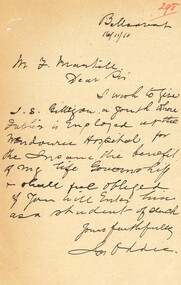 298
Ballaarat
16/11/20
Mr F. Martell
Dear Sir
I wish to give
J. S. Gilligan, a youth whose
Father is Employed at the
Wendouree Hospital for
the Insane the benefit
of my life Governorship
& shall feel obliged
if you will Enter him
as a student of such
yours faithfully
Js Oddie